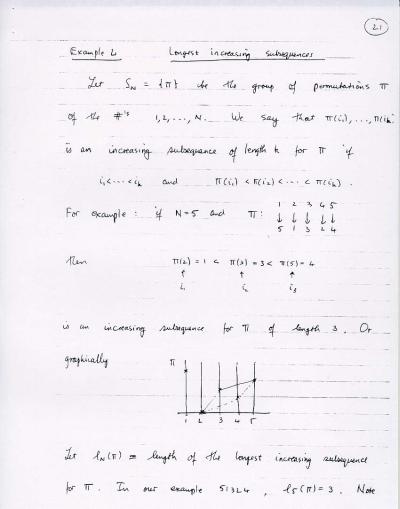 21
Example 2 Longest increasing subsequences
Let S_N = {π} be the group of permutations π
of the #'s 1, 2, ..., N. We say that π(i₁), ..., π(i_k)
is an increasing subsequence of length k for π if
i₁ < ... < i_k and π(i₁) < π(i₂) < ... < π(i_k).
For example: if N = 5 and π: 1 2 3 4 5
↓ ↓ ↓ ↓ ↓
5 1 3 2 4
then π(2) = 1 < π(3) = 3 < π(5) = 4
↑ ↑ ↑
i₁ i₂ i₃
is an increasing subsequence for π of length 3. Or
graphically π
1 2 3 4 5
Let l_N(π) = length of the longest increasing subsequence
for π. In our example 51324, l₅(π) = 3. Note